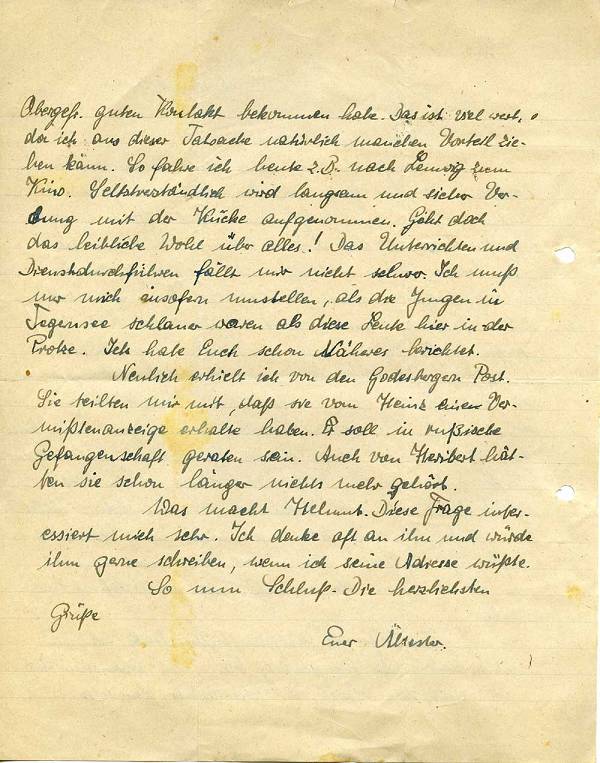 Obergefr. guten Kontakt bekommen habe. Das ist viel wert,
da ich aus dieser Tatsache natürlich manchen Vorteil zie-
hen kann. So fahre ich heute z.B. nach Lemvig zum
Kino. Selbstverständlich wird langsam und sicher Ver-
bung mit der Küche aufgenommen. Geht doch
das leibliche Wohl über alles! Das Unterrichten und
Dienstdurchführen fällt mir nicht schwer. Ich muß
nur mich insofern umstellen, als die Jungen in
Tegernsee schlauer waren als diese Leute hier in der
Protze. Ich habe Euch schon Näheres berichtet.
Neulich erhielt ich von den Godesbergern Post.
Sie teilten mir mit, daß sie vom Heinz einen Ver-
mißtenanzeige erhalte haben. Er soll in rußische
Gefangenschaft geraten sein. Auch von Heribert hät-
ten sie schon länger nichts mehr gehört.
Was macht Helmut. Diese Frage inter-
essiert mich sehr. Ich denke oft an ihn und würde
ihm gerne schreiben, wenn ich seine Adresse wüßte.
So nun Schluß. Die herzlichsten
Grüße
Euer Ältester.